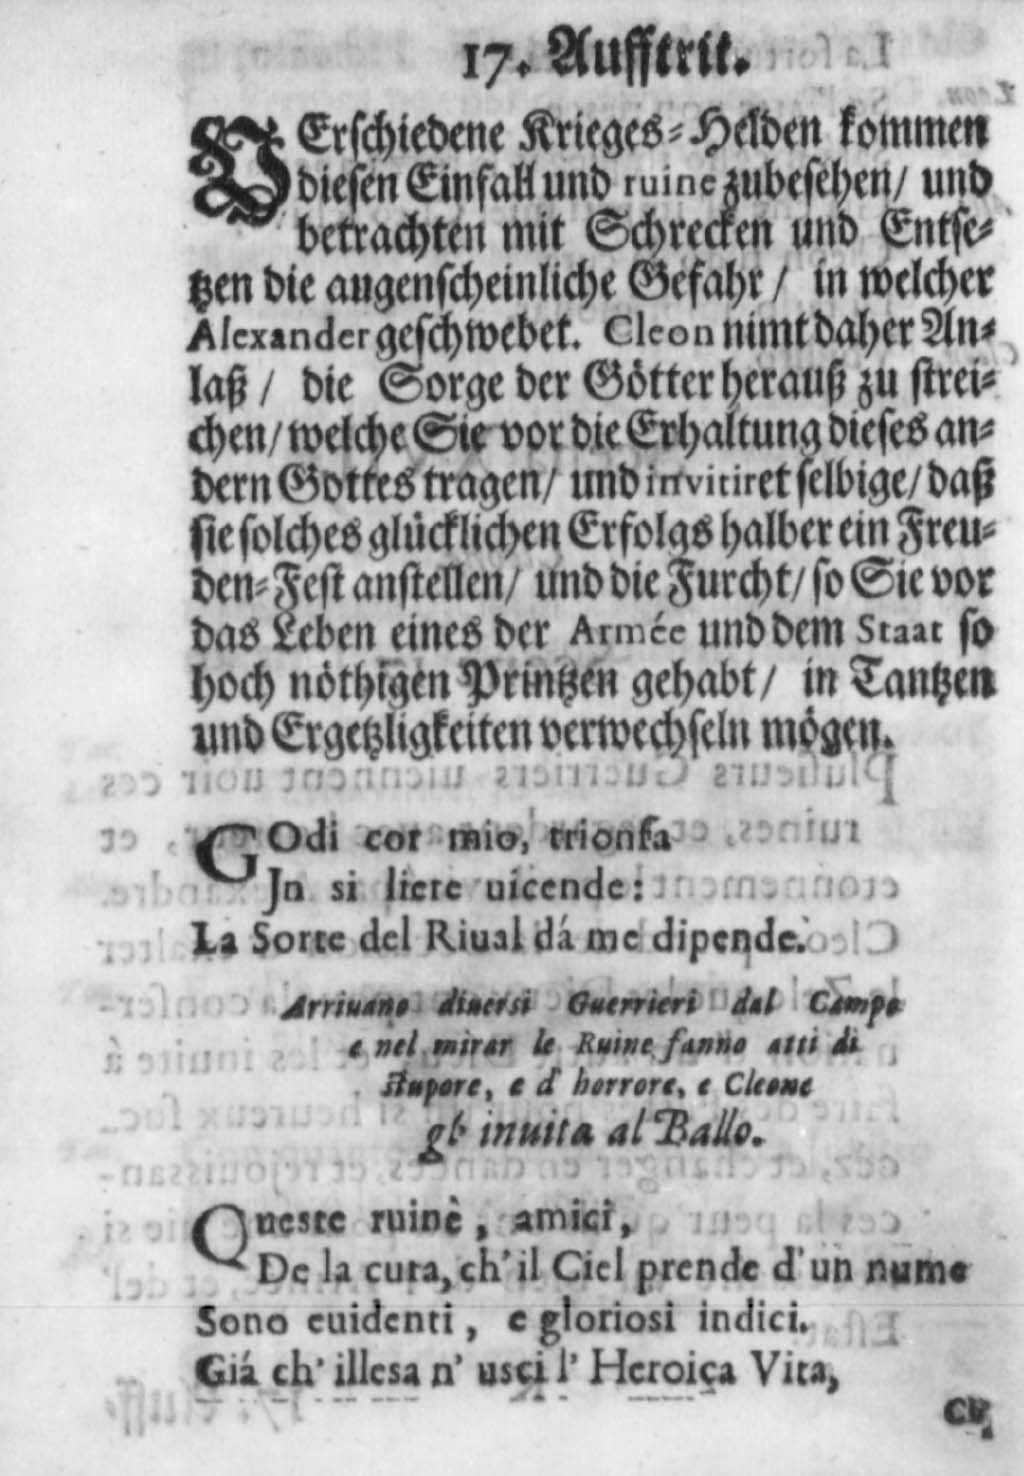 17. Aufftrit.
VErschiedene Krieges-Helden kommen
diesen Einfall und ruine zubesehen/ und
betrachten mit Schrecken und Entse-
tzen die augenscheinliche Gefahr/ in welcher
Alexander geschwebet. Cleon nimt daher An-
laß/ die Sorge der Götter herauß zu strei-
chen/ welche Sie vor die Erhaltung dieses an-
dern Gottes tragen/ und invitiret selbige/ daß
sie solches glücklichen Erfolgs halber ein Freu-
den-Fest anstellen/ und die Furcht/ so Sie vor
das Leben eines der Armée und dem Staat so
hoch nöthigen Printzen gehabt/ in Tantzen
und Ergetzligkeiten verwechseln mögen.
GOdi cor mio, trionfa
Jn si liete uicende:
La Sorte del Riual dá me dipende.
Arriuano diuersi Guerrieri dal Campo
e nel mirar le Ruine fanno atti di
stupore, e d' horrore, e Cleone
gl' inuita al Ballo.
Queste ruinè, amici,
De la cura, ch' il Ciel prende d' un nume
Sono euidenti, e gloriosi indici.
Giá ch' illesa n' usci l' Heroica Vita,